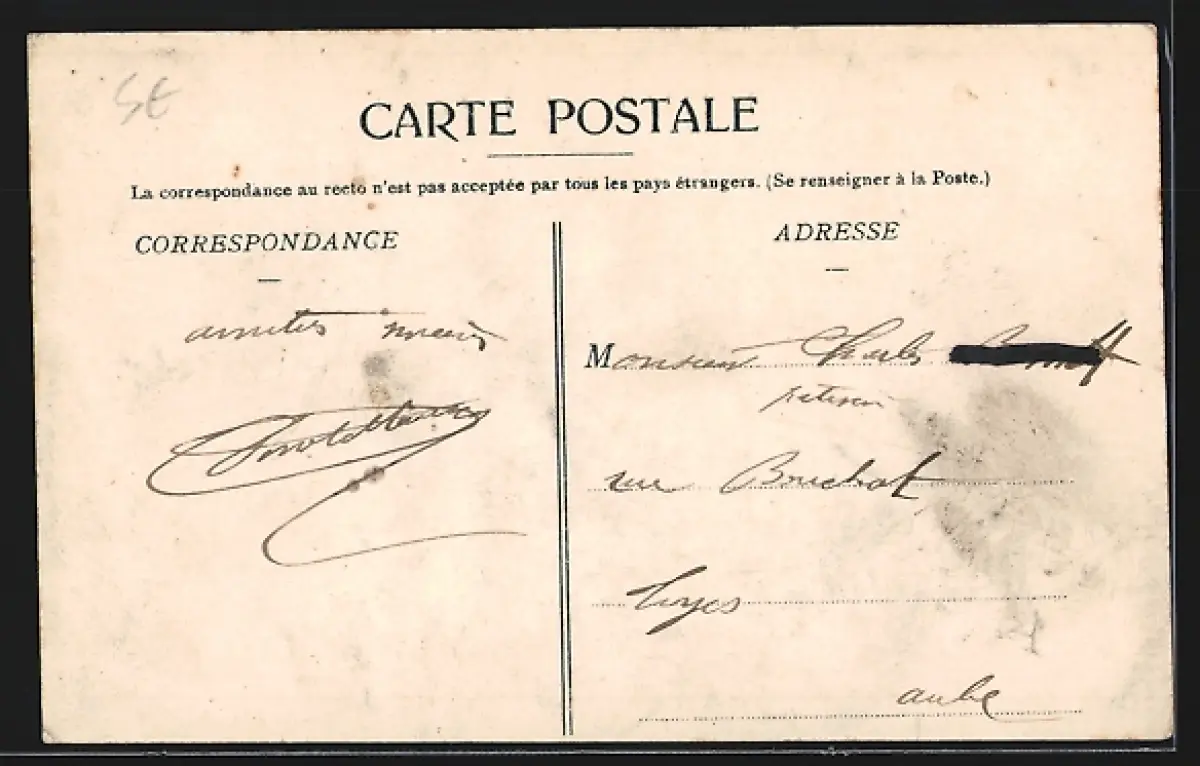 CARTE POSTALE
La correspondance au recto n'est pas acceptée par tous les pays étrangers. (Se renseigner à la Poste.)
CORRESPONDANCE
amitiés
ADRESSE
Monsieur Charles
rue Bouchot
Troyes
aube